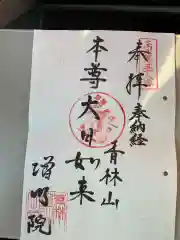 奉拝
奉納経
青林山
本尊大日如来
増明院